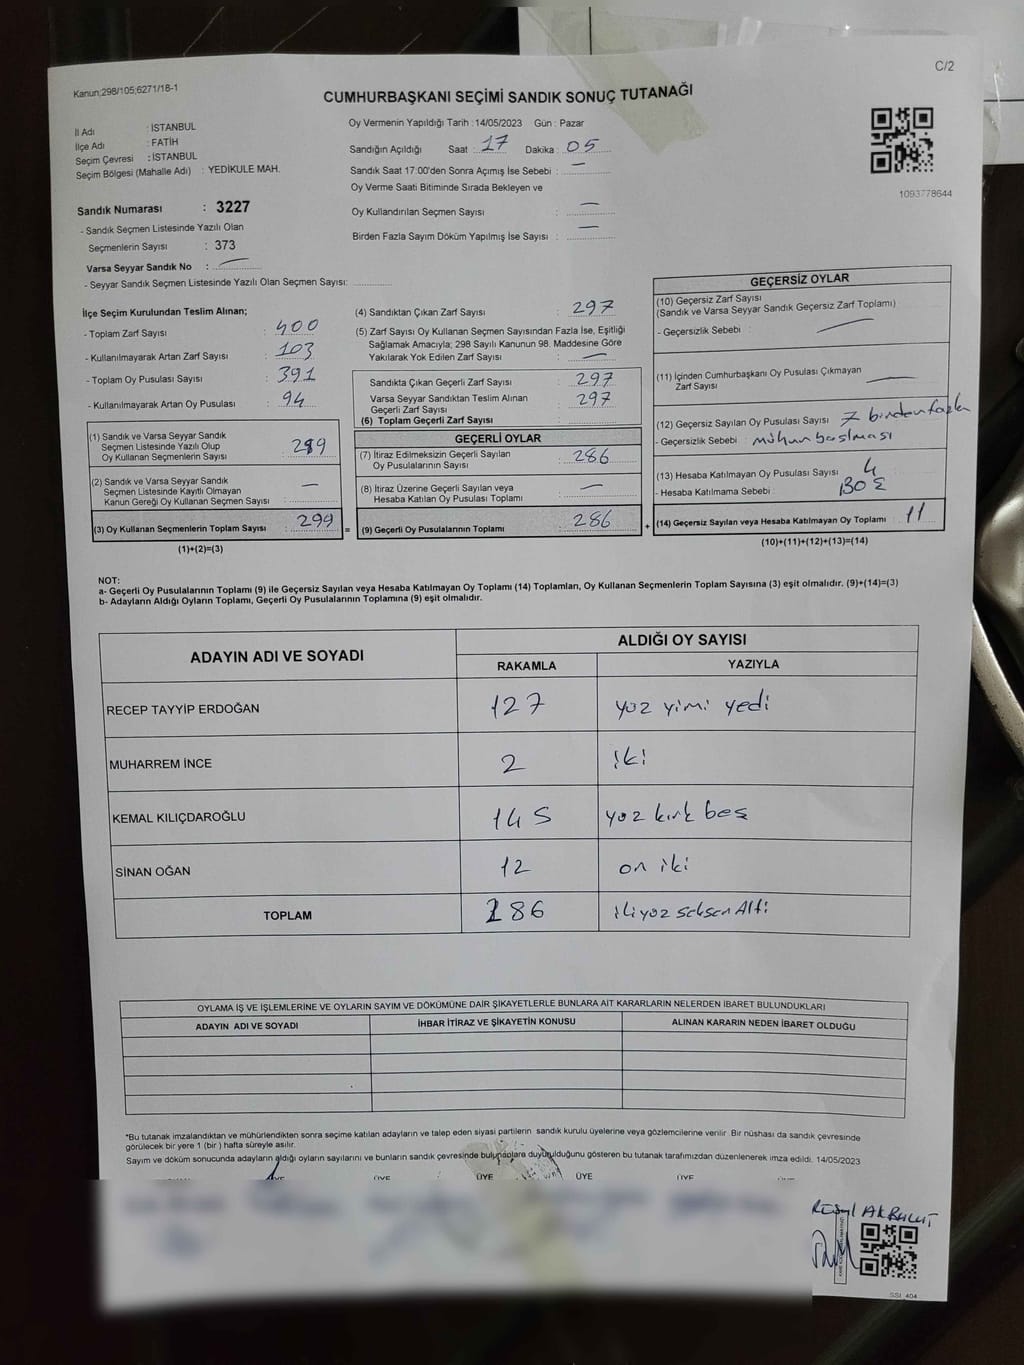 C/2
Kanun;298/105;6271/18-1
CUMHURBAŞKANI SEÇİMİ SANDIK SONUÇ TUTANAĞI
İl Adı : İSTANBUL
İlçe Adı : FATİH
Seçim Çevresi : İSTANBUL
Seçim Bölgesi (Mahalle Adı) : YEDİKULE MAH.
Sandık Numarası : 3227
- Sandık Seçmen Listesinde Yazılı Olan
Seçmenlerin Sayısı : 373
Varsa Seyyar Sandık No : —
- Seyyar Sandık Seçmen Listesinde Yazılı Olan Seçmen Sayısı:
Oy Vermenin Yapıldığı Tarih : 14/05/2023 Gün : Pazar
Sandığın Açıldığı Saat : 17 Dakika : 05
Sandık Saat 17:00'den Sonra Açımış İse Sebebi : —
Oy Verme Saati Bitiminde Sırada Bekleyen ve
Oy Kullandırılan Seçmen Sayısı : —
Birden Fazla Sayım Döküm Yapılmış İse Sayısı : —
1093778644
İlçe Seçim Kurulundan Teslim Alınan;
- Toplam Zarf Sayısı : 400
- Kullanılmayarak Artan Zarf Sayısı : 103
- Toplam Oy Pusulası Sayısı : 391
- Kullanılmayarak Artan Oy Pusulası : 94
(1) Sandık ve Varsa Seyyar Sandık
Seçmen Listesinde Yazılı Olup
Oy Kullanan Seçmenlerin Sayısı :
(2) Sandık ve Varsa Seyyar Sandık
Seçmen Listesinde Kayıtlı Olmayan
Kanun Gereği Oy Kullanan Seçmen Sayısı : —
(3) Oy Kullanan Seçmenlerin Toplam Sayısı : 299 =
(1)+(2)=(3)
(4) Sandıktan Çıkan Zarf Sayısı : 297
(5) Zarf Sayısı Oy Kullanan Seçmen Sayısından Fazla İse, Eşitliği
Sağlamak Amacıyla; 298 Sayılı Kanunun 98. Maddesine Göre
Yakılarak Yok Edilen Zarf Sayısı : —
Sandıkta Çıkan Geçerli Zarf Sayısı : 297
Varsa Seyyar Sandıktan Teslim Alınan : 297
Geçerli Zarf Sayısı
(6) Toplam Geçerli Zarf Sayısı
GEÇERLİ OYLAR
(7) İtiraz Edilmeksizin Geçerli Sayılan
Oy Pusulalarının Sayısı : 286
(8) İtiraz Üzerine Geçerli Sayılan veya
Hesaba Katılan Oy Pusulası Toplamı : —
(9) Geçerli Oy Pusulalarının Toplamı : 286 +
GEÇERSİZ OYLAR
(10) Geçersiz Zarf Sayısı
(Sandık ve Varsa Seyyar Sandık Geçersiz Zarf Toplamı)
- Geçersizlik Sebebi : —
(11) İçinden Cumhurbaşkanı Oy Pusulası Çıkmayan
Zarf Sayısı —
(12) Geçersiz Sayılan Oy Pusulası Sayısı 7 birden fazla
- Geçersizlik Sebebi : mühür basılması
(13) Hesaba Katılmayan Oy Pusulası Sayısı 4
- Hesaba Katılmama Sebebi : BOŞ
(14) Geçersiz Sayılan veya Hesaba Katılmayan Oy Toplamı : 11
(10)+(11)+(12)+(13)=(14)
NOT:
a- Geçerli Oy Pusulalarının Toplamı (9) ile Geçersiz Sayılan veya Hesaba Katılmayan Oy Toplamı (14) Toplamları, Oy Kullanan Seçmenlerin Toplam Sayısına (3) eşit olmalıdır. (9)+(14)=(3)
b- Adayların Aldığı Oyların Toplamı, Geçerli Oy Pusulalarının Toplamına (9) eşit olmalıdır.
ADAYIN ADI VE SOYADI
ALDIĞI OY SAYISI
RAKAMLA YAZIYLA
RECEP TAYYİP ERDOĞAN 127 yüz yimi yedi
MUHARREM İNCE 2 iki
KEMAL KILIÇDAROĞLU 145 yüz kırk beş
SİNAN OĞAN 12 on iki
TOPLAM 286 ikiyüz seksen Altı
OYLAMA İŞ VE İŞLEMLERİNE VE OYLARIN SAYIM VE DÖKÜMÜNE DAİR ŞİKAYETLERLE BUNLARA AİT KARARLARIN NELERDEN İBARET BULUNDUKLARI
ADAYIN ADI VE SOYADI İHBAR İTİRAZ VE ŞİKAYETİN KONUSU ALINAN KARARIN NEDEN İBARET OLDUĞU
*Bu tutanak imzalandıktan ve mühürlendikten sonra seçime katılan adayların ve talep eden siyasi partilerin sandık kurulu üyelerine veya gözlemcilerine verilir. Bir nüshası da sandık çevresinde
görülecek bir yere 1 (bir) hafta süreyle asılır.
Sayım ve döküm sonucunda adayların aldığı oyların sayılarını ve bunların sandık çevresinde bulunanlara duyurulduğunu gösteren bu tutanak tarafımızdan düzenlenerek imza edildi. 14/05/2023
ÜYE ÜYE ÜYE ÜYE
AKBULUT
SSI_404